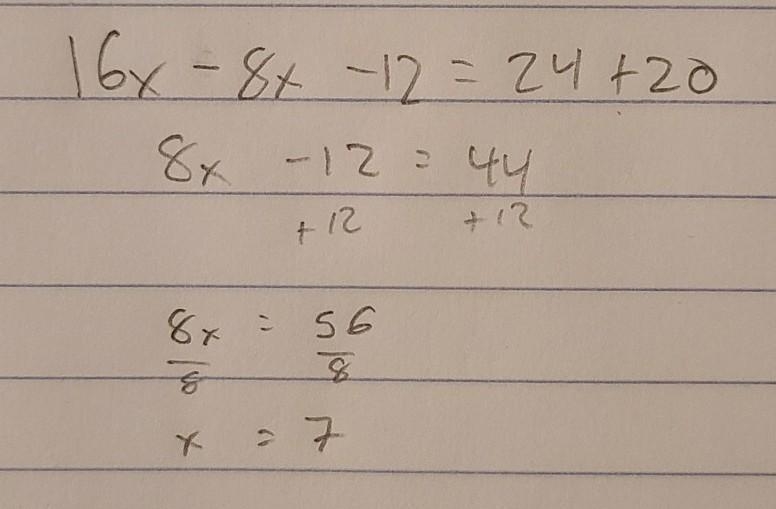 16x - 8x - 12 = 24 + 20
8x - 12 = 44
+ 12 + 12
8x = 56
8 8
x = 7